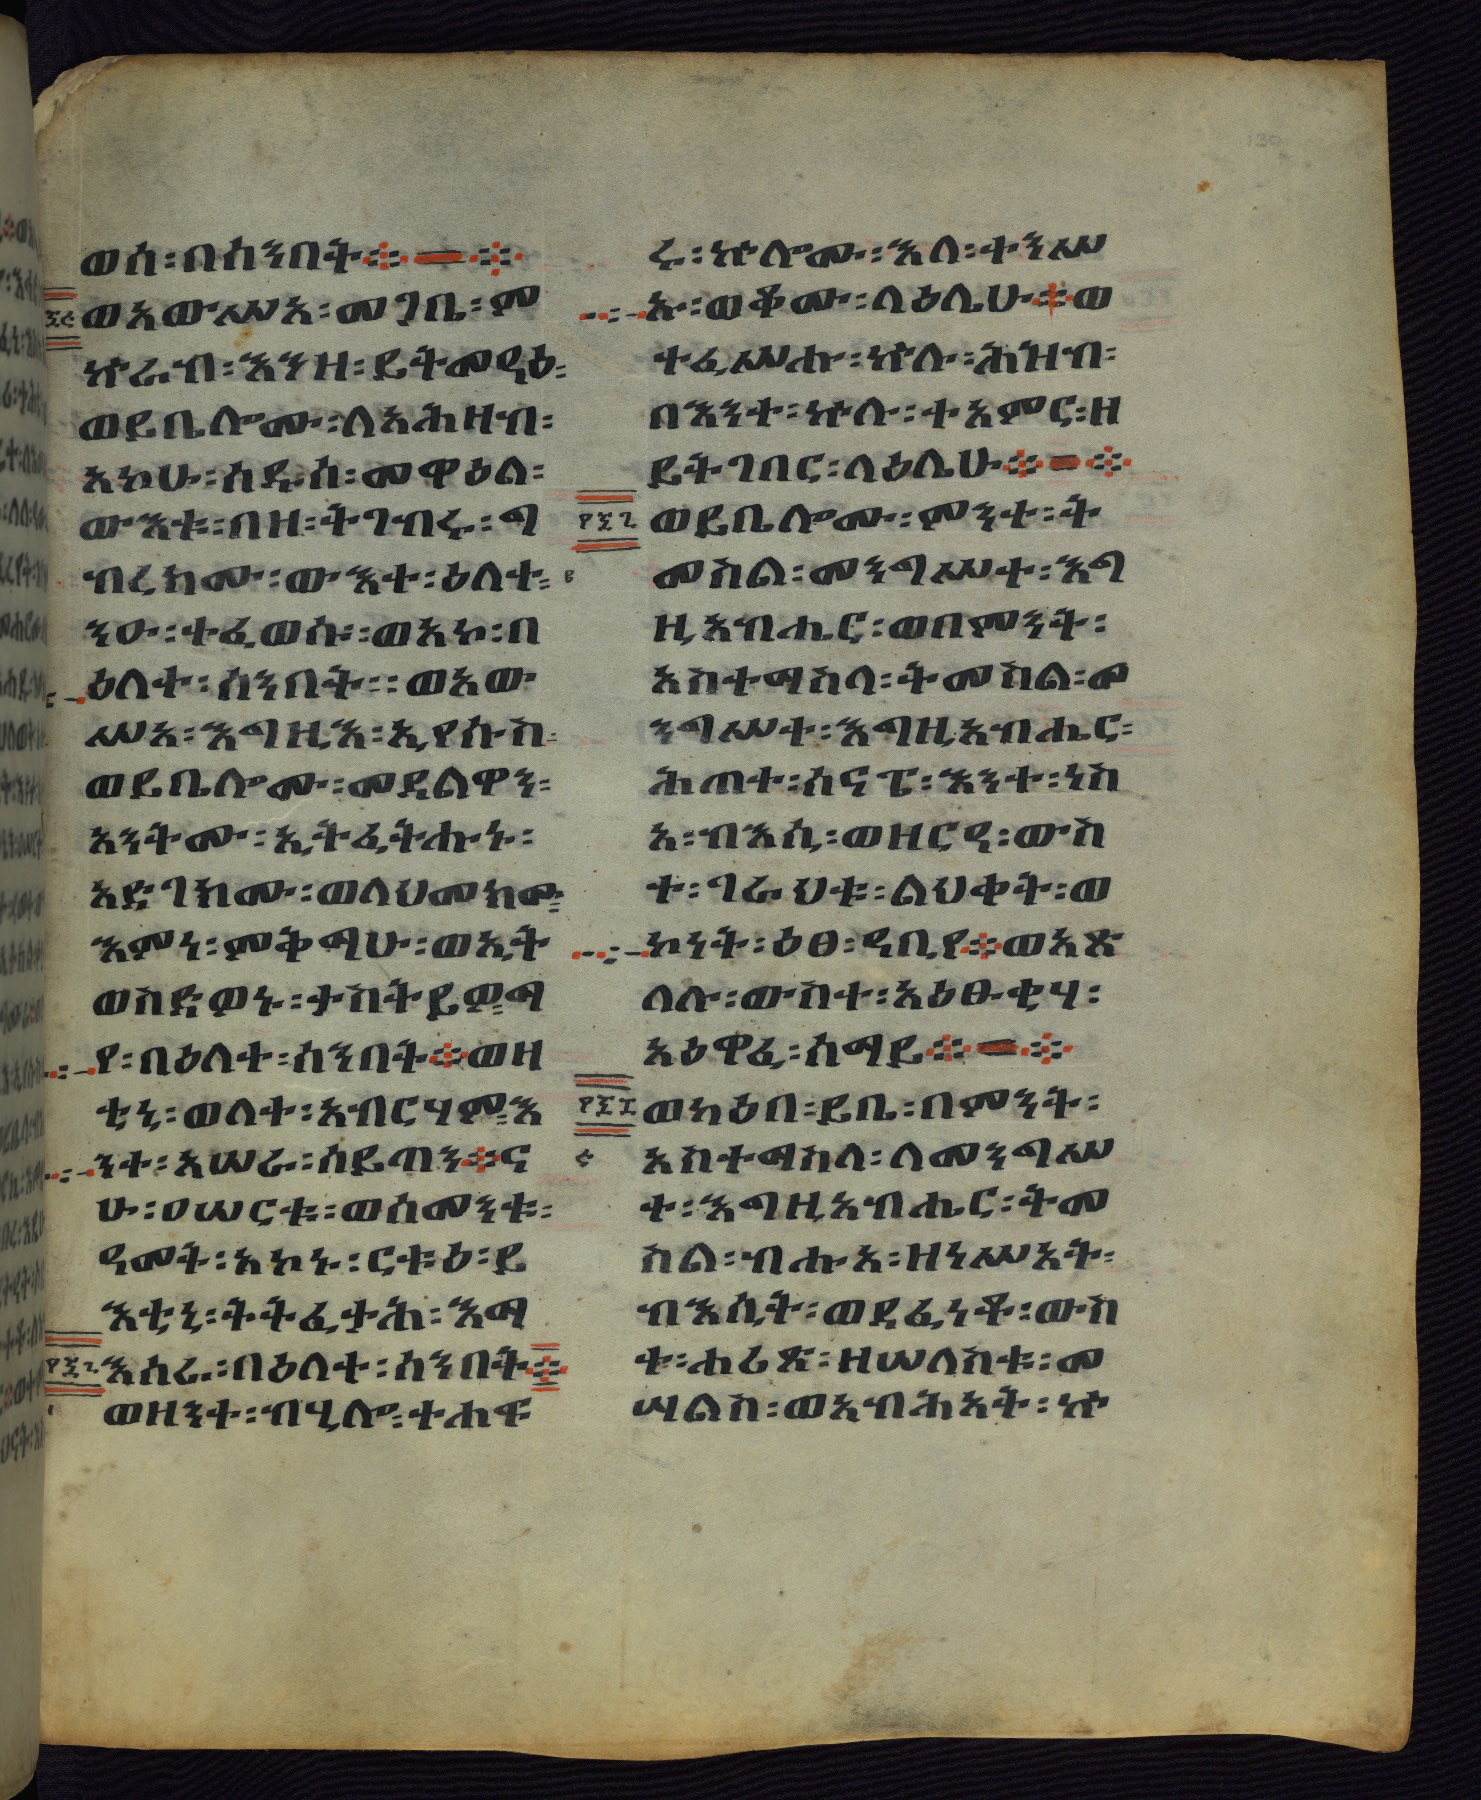 ወሰ፡በሰንበት፨—፨
ወአውሥአ፡መገቤ፡ም
ኵራብ፡እንዘ፡ይትመዓዕ፡
ወይቤሎሙ፡ለአሕዛብ፡
አኮሁ፡ሰዱስ፡መዋዕል፡
ውእቱ፡በዘ፡ትገብሩ፡ግ
ብረክሙ፡ውእተ፡ዕለተ፡
ንዑ፡ተፈወሱ፡ወአኮ፡በ
ዕለተ፡ሰንበት፡፡ወአው
ሥአ፡እግዚእ፡ኢየሱስ፡
ወይቤሎሙ፡መደልዋን፡
አንትሙ፡ኢትፈትሑኑ፡
አድገክሙ፡ወላህመክሙ፡
እምነ፡ምቅማሁ፡ወኢት
ወስድዎኑ፡ታስትይዎ፡ማ
የ፡በዕለተ፡ሰንበት፨ወዛ
ቲኒ፡ወለተ፡አብርሃም፡እ
ንተ፡አሠራ፡ሰይጣን፨ና
ሁ፡ዐሠርቱ፡ወሰመንቱ፡
ዓመት፡አኮኑ፡ርቱዕ፡ይ
እቲኒ፡ትትፈታሕ፡እማ
እሰራ፡በዕለተ፡ሰንበት፨
ወዘንተ፡ብሂሎ፡ተሐፍ
ሩ፡ኵሎሙ፡እለ፡ተንሥ
ኡ፡ወቆሙ፡ላዕሌሁ፨ወ
ተፈሥሑ፡ኵሉ፡ሕዝብ፡
በእንተ፡ኵሉ፡ተአምር፡ዘ
ይትገበር፡ላዕሌሁ፨—፨
ወይቤሎሙ፡ምንተ፡ት
መስል፡መንግሥተ፡እግ
ዚአብሔር፡ወበምንት፡
አስተማስላ፡ትመስል፡መ
ንግሥተ፡እግዚአብሔር፡
ሕጠተ፡ሰናፔ፡እንተ፡ነሥ
አ፡ብእሲ፡ወዘርዓ፡ውስ
ተ፡ገራህቱ፡ልህቀት፡ወ
ኮነት፡ዕፀ፡ዓቢየ፨ወአጽ
ለሉ፡ውስተ፡አዕፁቂሃ፡
አዕዋፈ፡ሰማይ፨—፨
ወካዕበ፡ይቤ፡በምንት፡
አስተማስላ፡ለመንግሥ
ተ፡እግዚአብሔር፡ትመ
ስል፡ብሑአ፡ዘነሥአት፡
ብእሲት፡ወደፈነቶ፡ውስ
ተ፡ሐሪጽ፡ዘሠለስቱ፡መ
ሣልስ፡ወአብሕአት፡ኵ